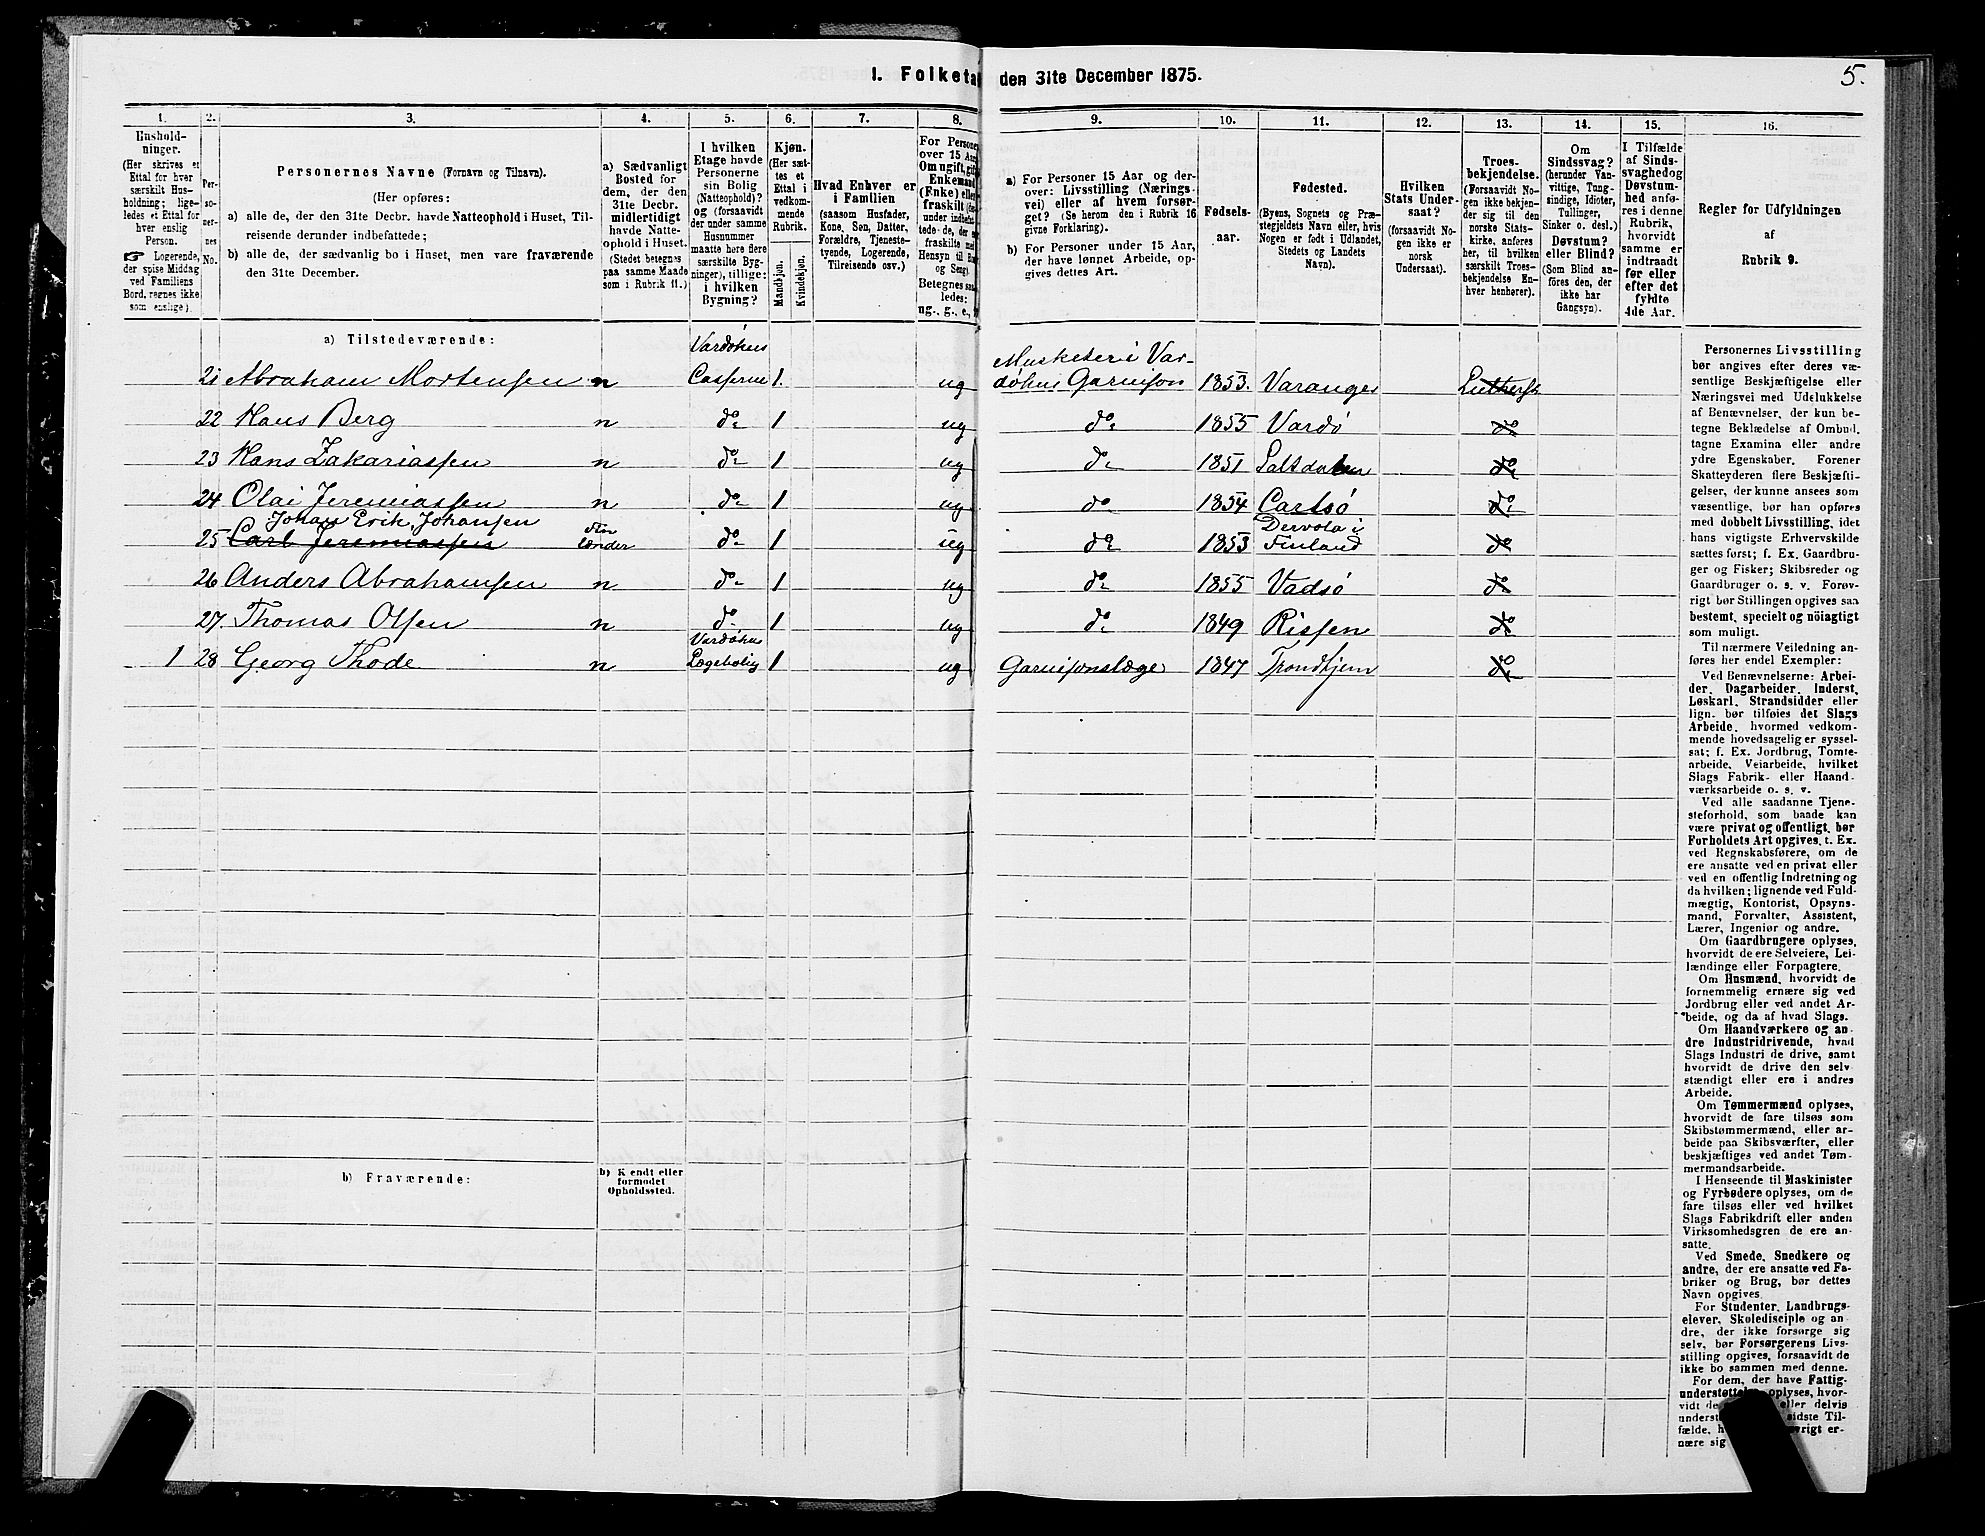 1. Folketa den 31te December 1875.
5.
1. 2. 3. 4. 5. 6. 7. 8. 9. 10. 11. 12. 13. 14. 15. 16.
Hushold-
ninger.
(Her skrives et
Ettal for hver
særskilt Hus-
holdning; lige-
ledes et Ettal for
hver enslig
Person.
☞ Logerende,
der spise Middag
ved Familiens
Bord, regnes ikke
som enslige).
Per-
so-
ner-
nes
No.
Personernes Navne (Fornavn og Tilnavn).
(Her opføres:
a) alle de, der den 31te Decbr. havde Natteophold i Huset, Til-
reisende derunder indbefattede;
b) alle de, der sædvanlig bo i Huset, men vare fraværende
den 31te December.
a) Sædvanligt
Bosted for
dem, der den
31te Decbr.
midlertidigt
havde Natte-
ophold i Huset.
(Stedet betegnes
paa samme Maade
som i Rubrik 11.)
I hvilken
Etage havde
Personerne
sin Bolig
(Natteophold)?
og (forsaavidt
der under samme
Husnummer
maatte høre flere
særskilte Byg-
ninger), tillige:
i hvilken
Bygning?
Kjøn.
(Her sæt-
tes et
Ettal i
vedkom-
mende
Rubrik.
Mandkjøn.
Kvindekjøn.
Hvad Enhver er
i Familien
(saasom Husfader,
Kone, Søn, Datter,
Forældre, Tjeneste-
tyende, Logerende,
Tilreisende osv.)
For Personer
over 15 Aar
Om ugift, gift
Enkemand
(Enke) eller
fraskilt
under indbefat-
tede de, der
fraskilte med
Hensyn til
og Seng).
Betegnes
ledes:
ug., g., e.,
a) For Personer 15 Aar og der-
over: Livsstilling (Nærings-
vei) eller af hvem forsør-
get? (Se herom den i Rubrik 16
givne Forklaring).
b) For Personer under 15 Aar,
der have lønnet Arbeide, op-
gives dettes Art.
Fødsels-
aar.
Fødested.
(Byens, Sognets og Præ-
stegjeldets Navn eller, hvis
Nogen er født i Udlandet,
Stedets og Landets
Navn).
Hvilken
Stats Under-
saat?
(forsaavidt No-
gen ikke er
norsk
Undersaat).
Troes-
bekjendelse.
(Forsaavidt No-
gen ikke bekjen-
der sig til den
norske Stats-
kirke, anføres
her, til hvilken
særskilt Troes-
bekjendelse En-
hver henhører).
Om
Sindssvag?
(herunder Van-
vittige, Tung-
sindige, Idioter,
Tullinger,
Sinker o. desl.)
Døvstum?
eller Blind?
(Som Blind an-
føres den, der
ikke har
Gangsyn).
I Tilfælde
af Sinds-
svaghed og
Døvstum-
hed anfø-
res i denne
Rubrik,
hvorvidt
samme er
indtraadt
før eller
efter det
fyldte
4de Aar.
Regler for Udfyldningen
af
Rubrik 9.
a) Tilstedeværende:
21 Abraham Mortensen n Vardøhus Casserne 1. ug Musketer i Var-
døhus Garnison 1853. Varanger Luthersk
22 Hans Berg n do 1 ug do 1855 Vardø do
23 Hans Zakariassen n do 1 ug do 1851 Saltdalen do
24 Olai Jeremiassen n do 1 ug do 1854 do
Johan Erik Johansen
25 Carl Jeremiassen do 1 ug do 1853 Dervola i Finland do
26 Anders Abrahamsen n do 1 ug do 1855 Vadsø do
27. Thomas Olsen n do 1 ug do 1849 Rissen do
1 28 Georg Thode n Vardøhus Lægebolig 1 ug Garnisonslæge 1847 Trondhjem do
b) Fraværende:
b) Kjendt eller
formodet
Opholdssted.
Personernes Livsstilling
bør angives efter deres væ-
sentlige Beskjæftigelse eller
Næringsvei med Udelukkelse
af Benævnelser, der kun be-
tegne Beklædelse af Ombud,
tagne Examina eller andre
ydre Egenskaber. Forener
Skatteyderen flere Beskjæfti-
gelser, der kunne ansees som
væsentlige, bør han opføres
med dobbelt Livsstilling, idet
hans vigtigste Erhvervskilde
sættes først; f. Ex. Gaardbru-
ger og Fisker; Skibsreder og
Gaardbruger o. s. v. Forøv-
rigt bør Stillingen opgives saa
bestemt, specielt og nöiagtigt
som muligt.
Til nærmere Veiledning an-
føres her endel Exempler:
Ved Benævnelserne: Arbei-
der, Dagarbeider, Inderst,
Løskarl, Strandsidder eller
lign. bør tilføies det Slags
Arbeide, hvormed vedkom-
mende hovedsagelig er syssel-
sat; f. Ex. Jordbrug, Tomte-
arbeide, Veiarbeide, hvilket
Slags Fabrik- eller Haand-
værksarbeide o. s. v.
Ved alle saadanne Tjene-
steforhold, som baade kan
være privat og offentligt, bør
Forholdets Art opgives, t. Ex.
ved Regnskabsførere, om de
ere ansatte ved en privat eller
ved en offentlig Indretning og
da hvilken; lignende ved Fuld-
mægtig, Kontorist, Opsyns-
mand, Forvalter, Assistent,
Lærer, Ingeniør og andre.
Om Gaardbrugere oplyses,
hvorvidt de ere Selveiere, Lei-
lændinge eller Forpagtere.
Om Husmænd, hvorvidt de
fornemmelig ernære sig ved
Jordbrug eller ved andet Ar-
beide, og da af hvad Slags.
Om Haandværkere og an-
dre Industridrivende, hvad
Slags Industri de drive, samt
hvorvidt de drive den selv-
stændigt eller ere i andres
Arbeide.
Om Tømmermænd oplyses,
hvorvidt de fare tilsøs som
Skibstømmermænd, eller ar-
beide paa Skibsværfter, eller
beskjæftiges ved andet Tøm-
mermandsarbeide.
I Henseende til Maskinister
og Fyrbødere oplyses, om de
fare tilsøs eller ved hvilket
Slags Fabrikdrift eller anden
Virksomhedsgren de ere an-
satte.
Ved Smede, Snedkere og
andre, der ere ansatte ved Fa-
briker og Brug, bør dettes
Navn opgives.
For Studenter, Landbrugs-
elever, Skoledisciple og an-
dre, der ikke forsørge sig
selv, bør Forsørgerens Livs-
stilling opgives, forsaavidt de
ikke bo sammen med denne.
For dem, der have Fattig-
understøttelse, oplyses, hvor-
vidt de eller delvis
underst sidste Til-
fælde, h vrigt er-
nære sig